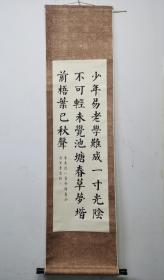 少年易老學難成一寸光陰
不可輕未覺池塘春草夢堦
前梧葉已秋聲